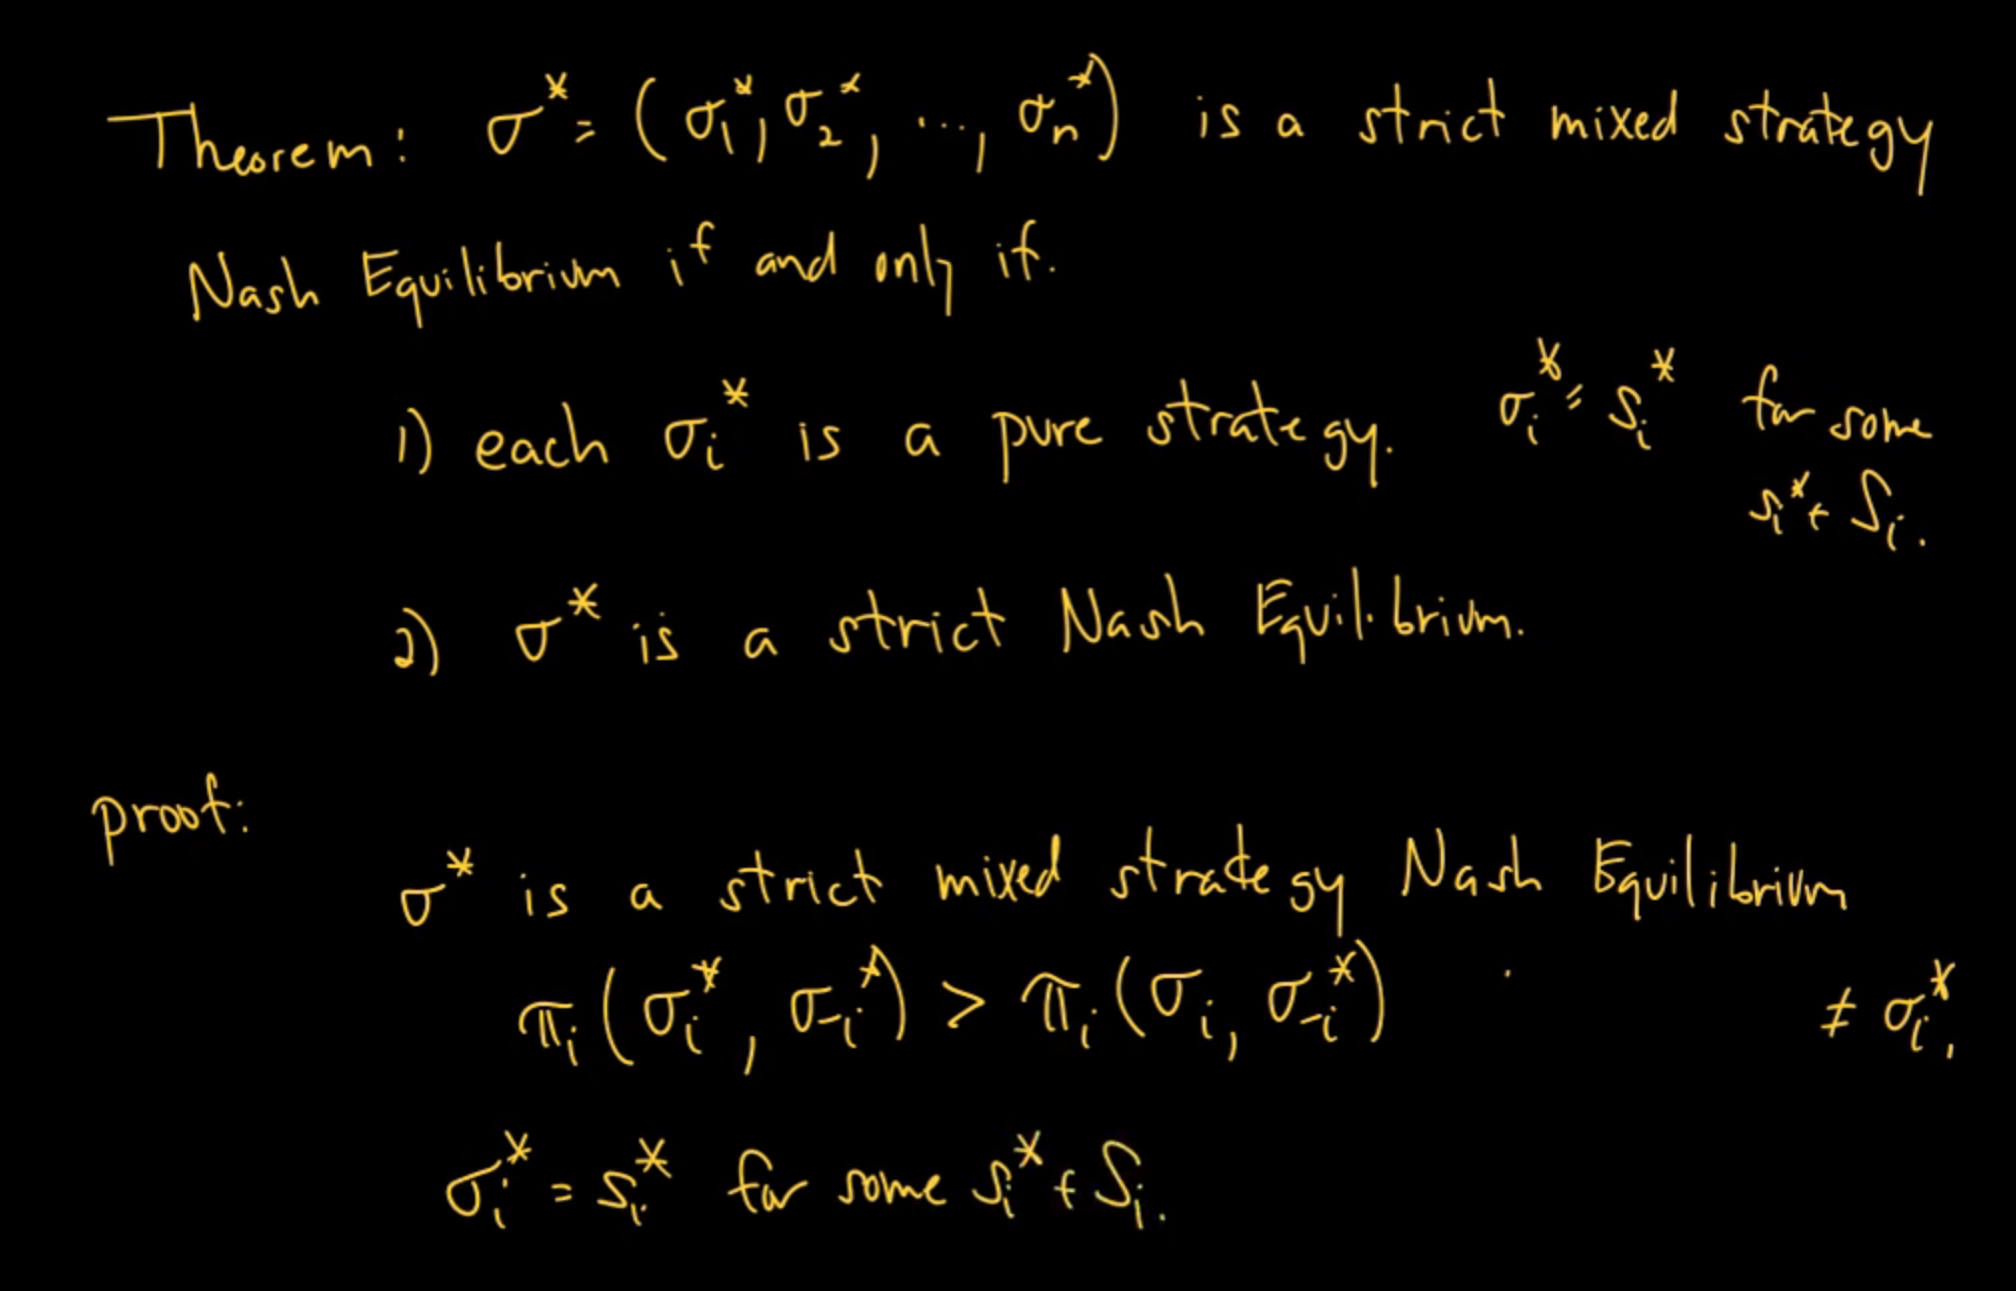 Theorem: σ* = (σ₁*, σ₂*, ..., σₙ*) is a strict mixed strategy
Nash Equilibrium if and only if.
1) each σᵢ* is a pure strategy. σᵢ* = sᵢ* for some
sᵢ* ∈ Sᵢ.
2) σ* is a strict Nash Equilibrium.
proof:
σ* is a strict mixed strategy Nash Equilibrium
πᵢ(σᵢ*, σ₋ᵢ*) > πᵢ(σᵢ, σ₋ᵢ*) ≠ σᵢ*.
σᵢ* = sᵢ* for some sᵢ* ∈ Sᵢ.